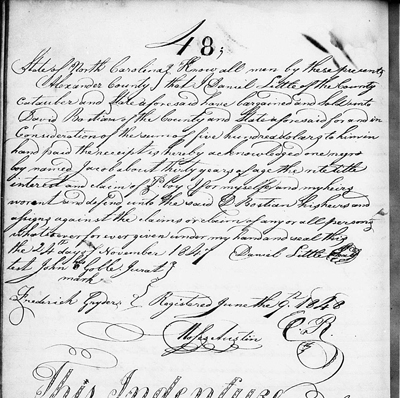 48;
State of North Carolina } Know all men by these presents
Alexander County } that I Daniel Little of the County
Catawber and State aforesaid have bargained and sold unto
David Bostian of the County and State aforesaid for and in
Consideration of the sum of five hundred dolars to him in
hand paid the receipt is hereby acknowledged one negro
boy named Jacob about Thirty years of age the rite title
interest and claim of boy I for myself and my heirs
worent and defend unto the said D Bostian his heirs and
asigns against the claims or claim of any or all persons
whatsoever for ever given under my hand and seal this
the 24th day of November 1847 Daniel Little
test John Goble Jurat }
mark
Frederick Gryder } Registered June the 9th 1848
C. R.
This Indenture